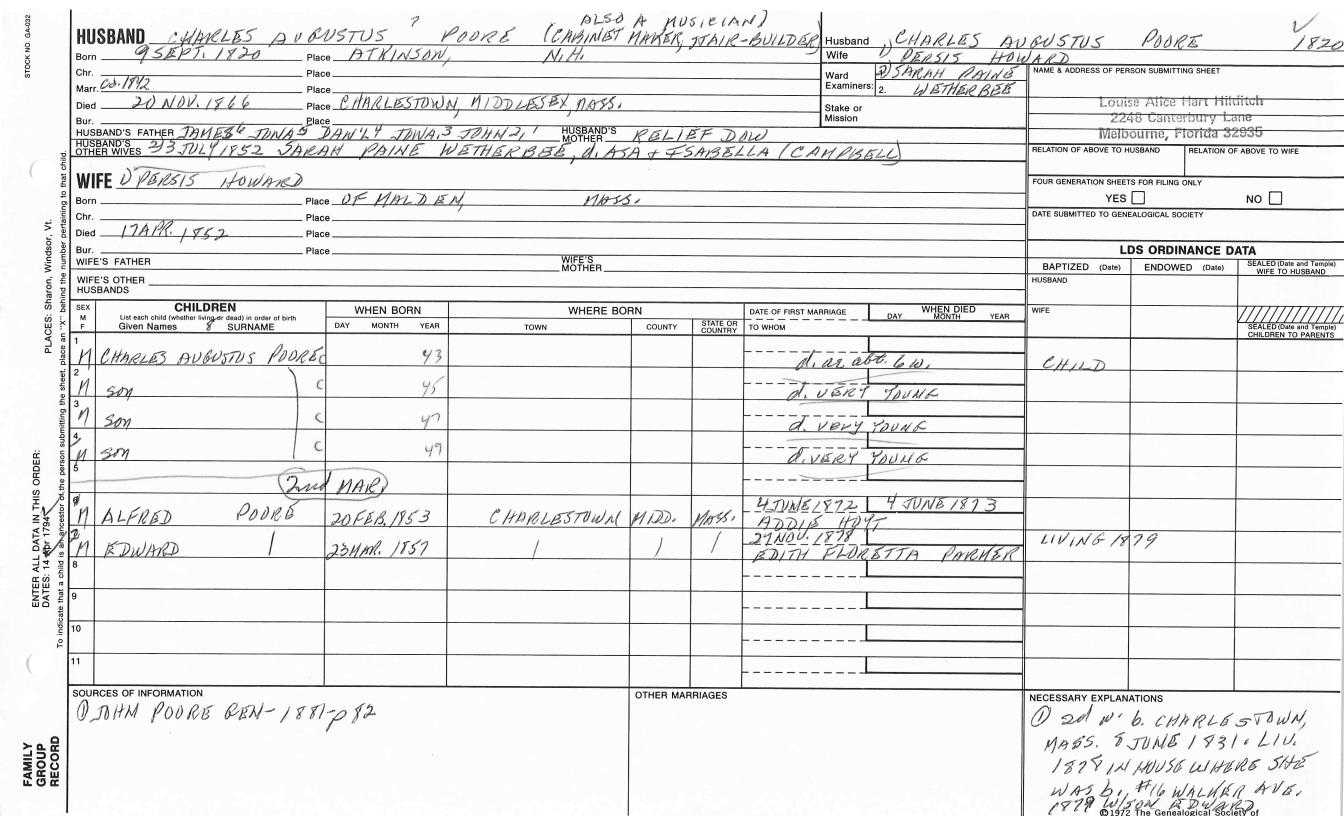 STOCK NO. GA-032
PLACES: Sharon, Windsor, Vt.
ENTER ALL DATA IN THIS ORDER:
DATES: 14 Apr 1794
To indicate that a child is an ancestor of the person submitting the sheet, place an "X" behind the number pertaining to that child.
FAMILY
GROUP
RECORD
?
ALSO A MUSICIAN)
HUSBAND CHARLES AUGUSTUS 7 POORE (CABINET MAKER, STAIR-BUILDER)
Born 9 SEPT. 1820 Place ATKINSON, N.H.
Chr. Place
Marr. ca. 1842 Place
Died 20 NOV. 1866 Place CHARLESTOWN, MIDDLESEX, MASS.
Bur. Place
HUSBAND'S FATHER JAMES6 JONA5 DAN'L4 JONA.3 JOHN2,1 HUSBAND'S MOTHER RELIEF DOW
HUSBAND'S OTHER WIVES 2) 3 JULY 1852 SARAH PAINE WETHERBEE, d. ASA + ISABELLA (CAMPBELL)
WIFE 1) PERSIS HOWARD
Born Place OF MALDEN, MASS.
Chr. Place
Died 17 APR. 1852 Place
Bur. Place
WIFE'S FATHER WIFE'S MOTHER
WIFE'S OTHER HUSBANDS
Husband CHARLES AUGUSTUS POORE 1820
Wife 1) PERSIS HOWARD
Ward 1. 2) SARAH PAINE
Examiners: 2. WETHERBEE
Stake or
Mission
NAME & ADDRESS OF PERSON SUBMITTING SHEET
Louise Alice Hart Hilditch
2248 Canterbury Lane
Melbourne, Florida 32935
RELATION OF ABOVE TO HUSBAND RELATION OF ABOVE TO WIFE
FOUR GENERATION SHEETS FOR FILING ONLY
YES NO
DATE SUBMITTED TO GENEALOGICAL SOCIETY
LDS ORDINANCE DATA
BAPTIZED (Date) ENDOWED (Date) SEALED (Date and Temple) WIFE TO HUSBAND
HUSBAND
WIFE
SEALED (Date and Temple) CHILDREN TO PARENTS
SEX M F CHILDREN WHEN BORN WHERE BORN DATE OF FIRST MARRIAGE WHEN DIED
List each child (whether living or dead) in order of birth
Given Names 8 SURNAME DAY MONTH YEAR TOWN COUNTY STATE OR COUNTRY TO WHOM DAY MONTH YEAR
1 M CHARLES AUGUSTUS POORE C 43 d. ae abt. 6 w. CHILD
2 M son C 45 d. VERY YOUNG
3 M son C 47 d. VERY YOUNG
4 M son C 49 d. VERY YOUNG
5 2nd MAR.
1 4 JUNE 1872 4 JUNE 1873
M ALFRED POORE 20 FEB. 1853 CHARLESTOWN MIDD. MASS. ADDIE HOYT
2 27 NOV. 1878 LIVING 1879
M EDWARD 23 MAR. 1857 EDITH FLORETTA PARKER
8
9
10
11
SOURCES OF INFORMATION
① JOHN POORE GEN-1881-p82
OTHER MARRIAGES
NECESSARY EXPLANATIONS
① 2d w. b. CHARLESTOWN,
MASS. 8 JUNE 1831. LIV.
1878 IN HOUSE WHERE SHE
WAS b., #16 WALKER AVE.
1879 W/SON EDWARD
©1972 The Genealogical Society of